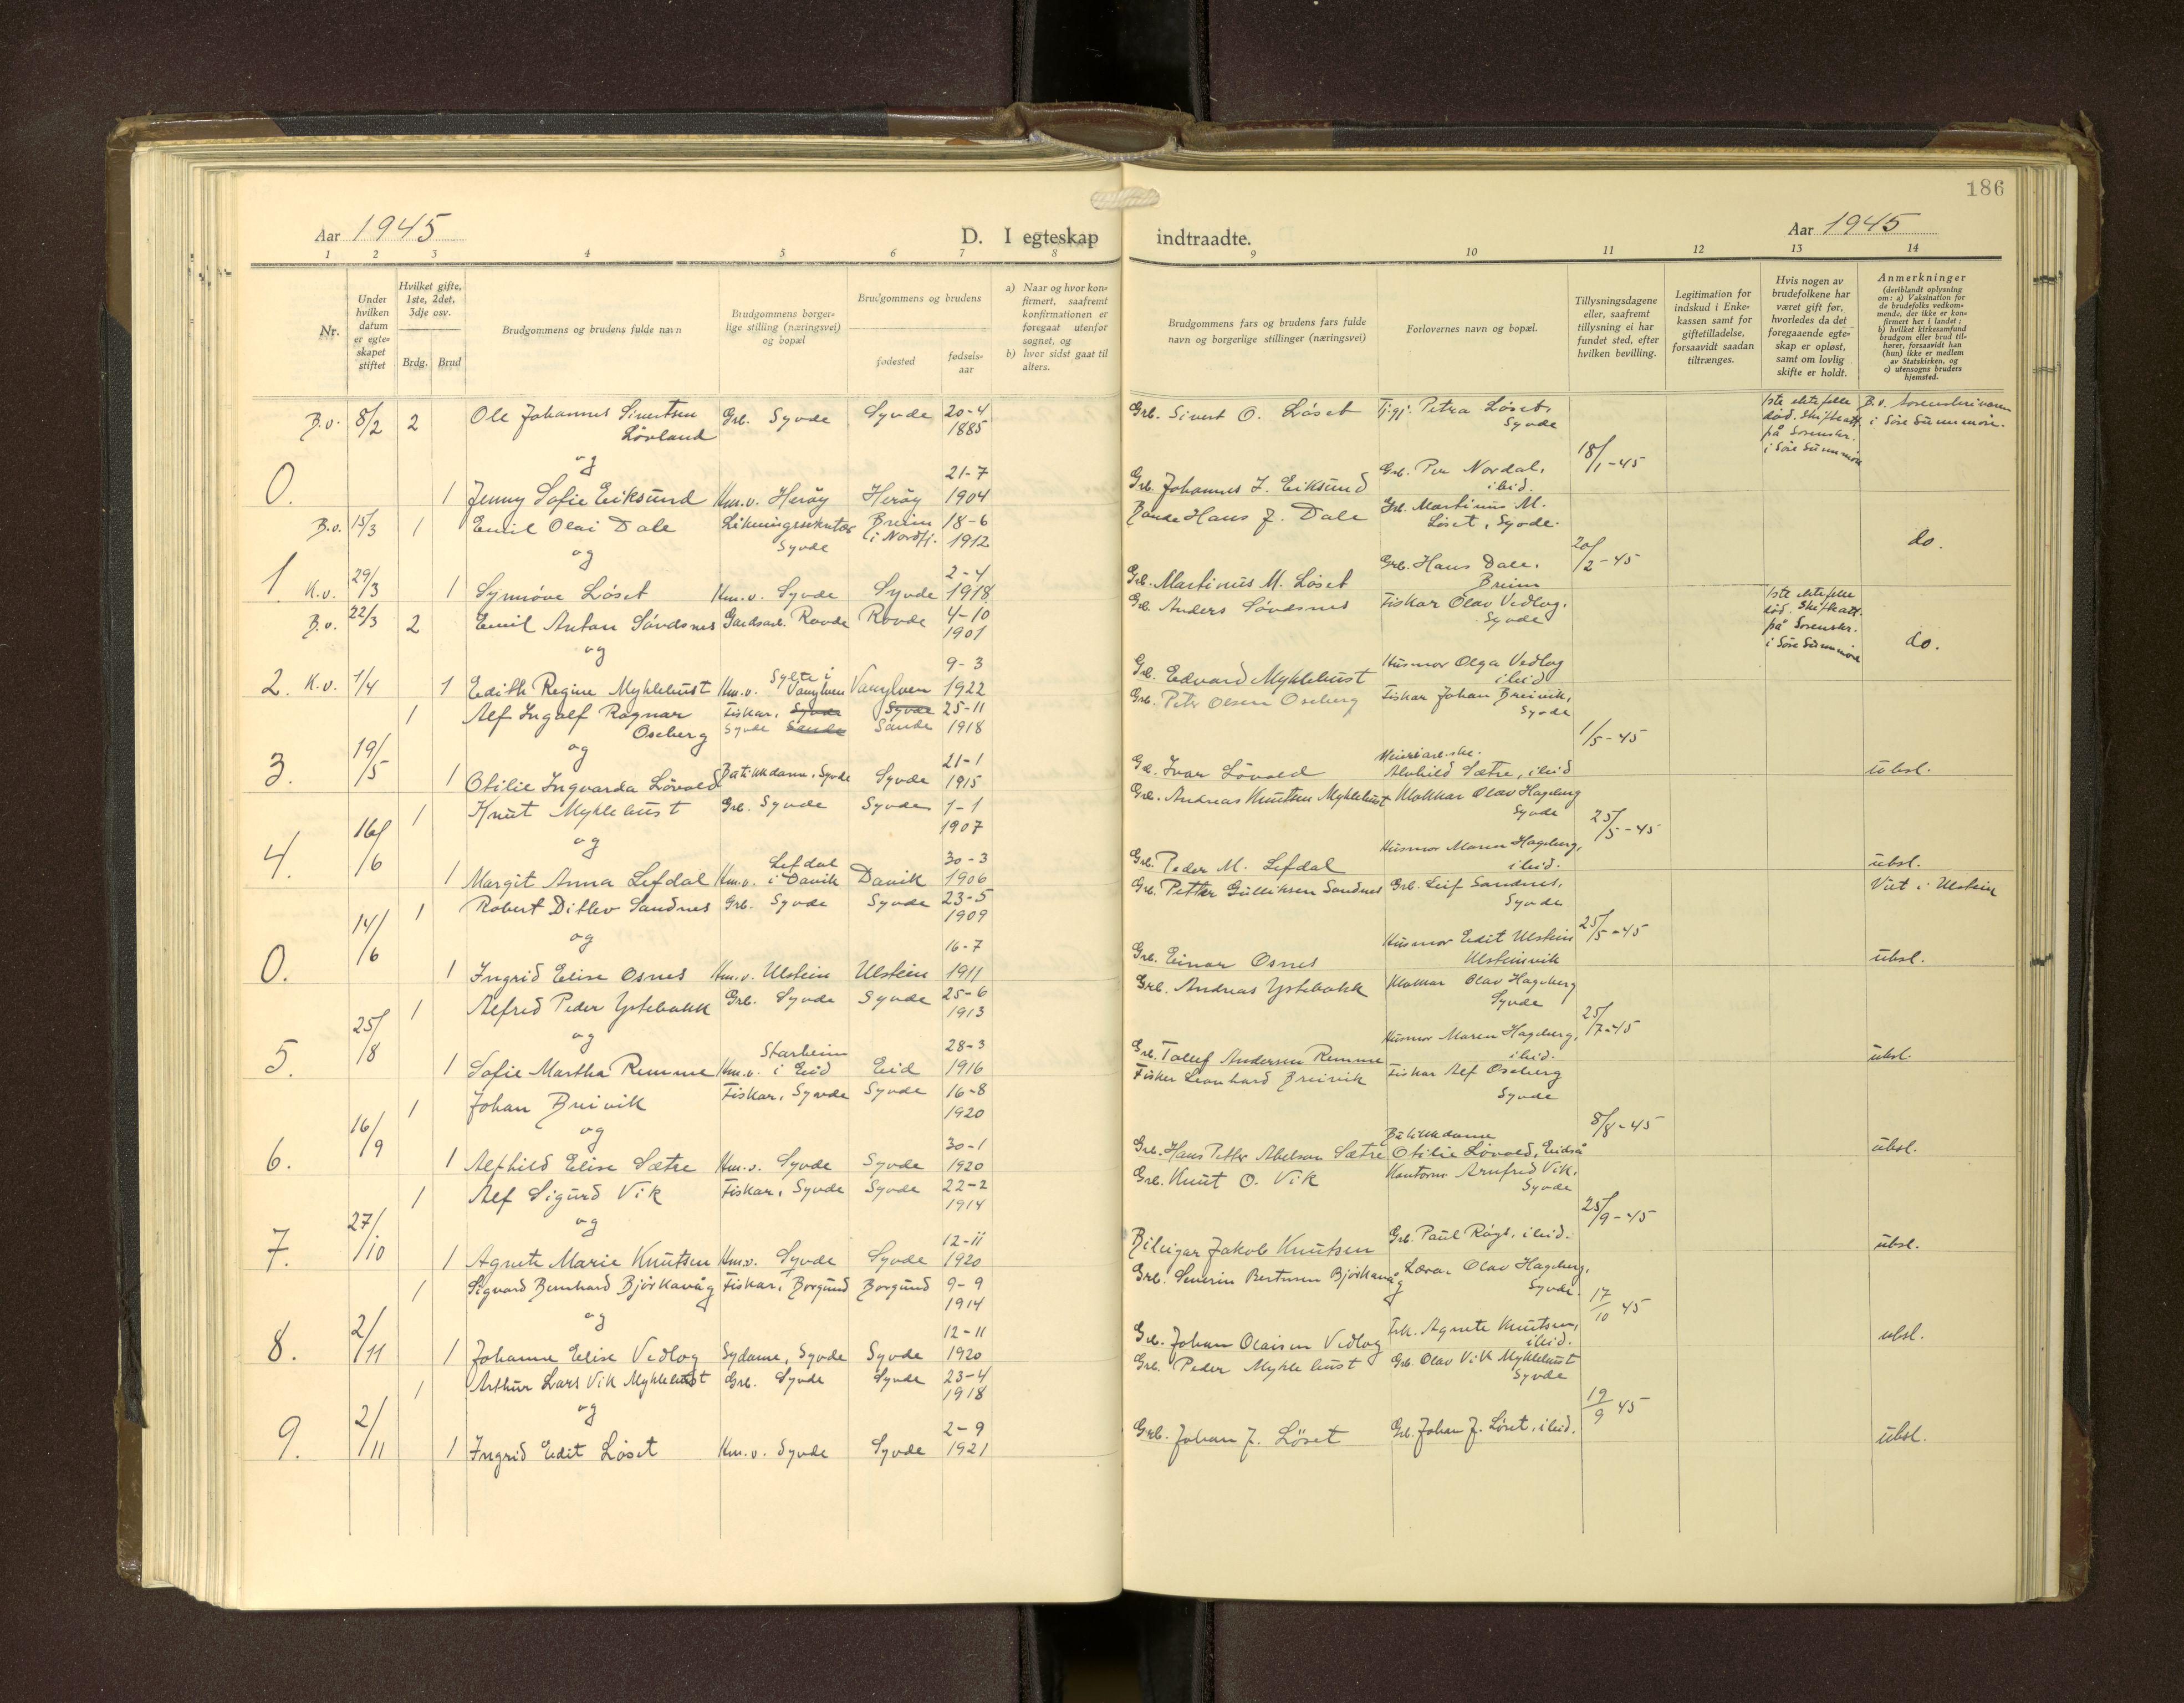 186
Aar 1945
D. I egteskap indtraadte.
Aar 1945
1 2 3 4 5 6 7 8 9 10 11 12 13 14
Nr.
Under hvilken datum er egteskapet stiftet
Hvilket gifte, 1ste, 2det, 3dje osv.
Brdg. Brud
Brudgommens og brudens fulde navn
Brudgommens borgerlige stilling (næringsvei) og bopæl
Brudgommens og brudens
fødested
fødselsaar
a) Naar og hvor konfirmert, saafremt konfirmationen er foregaat utenfor sognet, og
b) hvor sidst gaat til alters.
Brudgommens fars og brudens fars fulde navn og borgerlige stillinger (næringsvei)
Forlovernes navn og bopæl.
Tillysningsdagene eller, saafremt tillysning ei har fundet sted, efter hvilken bevilling.
Legitimation for indskud i Enkekassen samt for giftetilladelse, forsaavidt saadan tiltrænges.
Hvis nogen av brudefolkene har været gift før, hvorledes da det foregaaende egteskap er opløst, samt om lovlig skifte er holdt.
Anmerkninger
(deriblandt oplysning om: a) Vaksination for de brudefolks vedkommende, der ikke er konfirmert her i landet; b) hvilket kirkesamfund brudgom eller brud tilhører, forsaavidt han (hun) ikke er medlem av Statskirken, og c) utensogns bruders hjemsted.
B.v. 8/2 2 Ole Johannes Sivertsen Løvland Grb. Syvde Syvde 20-4 1885 Grb. Sivert O. Løset Petra Løset, Syvde
1ste ektefelle død. Skifteatt. på Sorenskr. i Søre Sunnmøre
B.v. Sorenskrivaren i Søre Sunnmøre.
og
18/1-45
0. 1 Jenny Sofie Eiksund Hm.v. Herøy Herøy 21-7 1904 Grb. Johannes J. Eiksund Grb. Per Nordal, ibid.
B.v. 15/3 1 Emil Olai Dale Likningssekretær Syvde Breim i Nordfj. 18-6 1912 Bonde Hans J. Dale Grb. Martinus M. Løset, Syvde.
og
20/2-45 do.
1 K.v. 29/3 1 Synnøve Løset Hm.v. Syvde Syvde 2-4 1918 Grb. Martinus M. Løset Grb. Hans Dale, Breim
B.v. 22/3 2 Emil Anton Søvdsnes Gardsarb. Rovde Rovde 4-10 1901 Grb. Anders Søvdsnes Fiskar Olav Vedlog, Syvde
1ste ektefelle død. Skifteatt. på Sorenskr. i Søre Sunnmøre do.
og
2. K.v. 1/4 1 Edith Regine Myklebust Hm.v. Sylte i Vanylven Vanylven 9-3 1922 Grb. Edvard Myklebust Husmor Olga Vedlog ibid
1 Alf Ingolf Ragnar Oseberg Fiskar, Syvde Syvde Sande Syvde Sande 25-11 1918 Grb. Petr Olsen Oseberg Fiskar Johan Breivik, Syvde
og
1/5-45
3. 19/5 1 Otilie Ingvarda Løvold Butikkdame, Syvde Syvde 21-1 1915 Grb. Ivar Løvold Alvhild Sætre, ibid ubsl.
1 Knut Myklebust Grb. Syvde Syvde 1-1 1907 Grb. Andreas Knutsen Myklebust Klokkar Olav Hageberg Syvde
og
25/5-45
4. 16/6 1 Margit Anna Lefdal Hm.v. Lefdal i Davik Davik 30-3 1906 Grb. Peder M. Lefdal Husmor Maren Hageberg, ibid. ubsl.
1 Robert Ditlev Sandnes Grb. Syvde Syvde 23-5 1909 Grb. Petter Gulliksen Sandnes Grb. Leif Sandnes, Syvde Viet i Ulstein
og
25/5-45
0. 14/6 1 Ingrid Elise Osnes Hm.v. Ulstein Ulstein 16-7 1911 Grb. Einar Osnes Husmor Edit Ulstein Ulsteinvik ubsl.
1 Alfred Peder Ystebakk Grb. Syvde Syvde 25-6 1913 Grb. Andreas Ystebakk Klokkar Olav Hageberg Syvde
og
25/7-45
5. 25/8 1 Sofie Martha Remme Hm.v. Starheim i Eid Eid 28-3 1916 Grb. Tollef Andersen Remme Husmor Maren Hageberg, ibid. ubsl.
1 Johan Breivik Fiskar, Syvde Syvde 16-8 1920 Fisker Leonhard Breivik Fiskar Alf Oseberg Syvde
og
8/8-45
6. 16/9 1 Alfhild Elise Sætre Hm.v. Syvde Syvde 30-1 1920 Grb. Hans Petter Abelsen Sætre Butikkdame Otilie Løvold, Eidså ubsl.
1 Alf Sigurd Vik Fiskar, Syvde Syvde 22-2 1914 Grb. Knut O. Vik Kontorm. Arnfred Vik, Syvde
og
25/9-45
7. 27/10 1 Agnete Marie Knutsen Hm.v. Syvde Syvde 12-11 1920 Bileigar Jakob Knutsen Grb. Paul Røys, ibid. ubsl.
1 Sigvard Bernhard Bjørkavåg Fiskar, Borgund Borgund 9-9 1914 Grb. Severin Bertinsen Bjørkavåg Lærar Olav Hageberg, Syvde.
og
17/10 45
8. 2/11 1 Johanne Elise Vedlog Sydame, Syvde Syvde 12-11 1920 Grb. Johan Olaisen Vedlog Frk. Agnete Knutsen, ibid. ubsl.
1 Arthur Lars Vik Myklebust Grb. Syvde Syvde 23-4 1918 Grb. Peder Myklebust Grb. Olav Vik Myklebust Syvde
og
19/9 45
9. 2/11 1 Ingrid Edit Løset Hm.v. Syvde Syvde 2-9 1921 Grb. Johan J. Løset Grb. Johan J. Løset, ibid. ubsl.